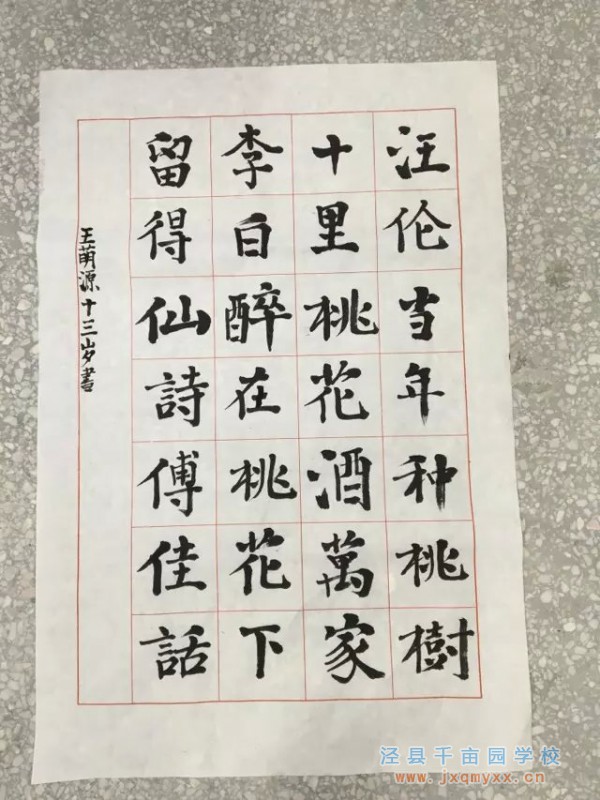 汪伦当年种桃樹
十里桃花酒萬家
李白醉在桃花下
留得仙詩傅佳話
王萌源十三岁書
泾县千亩园学校
www.jxqmyxx.cn